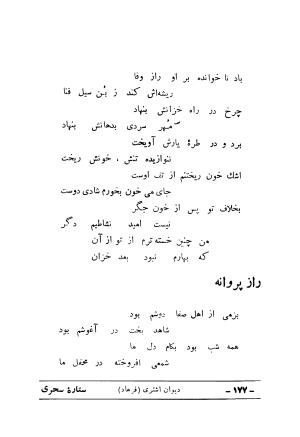 باد ناخوانده بر او راز وفا
ریشه‌اش کند ز بُن سیل فنا
چرخ در راه خزانش بنهاد
مُهر سردی بدهانش بنهاد
برد و در طرهٔ یارش آویخت
نوازیده تنش ، خونش ریخت
اشک خون ریختنم از تف اوست
جای می خون بخورم شادی دوست
بخلاف تو پس از خون جگر
نیست امید نشاطیم دگر
من چنین خسته ترم از تو از آن
که بهارم نبود بعد خزان
راز پروانه
بزمی از اهل صفا دوشم بود
شاهد بخت در آغوشم بود
همه شب بود بکام دل ما
شمعی افروخته در محفل ما
ستارهٔ سحری دیوان اشتری (فرهاد) - ۱۷۷ -